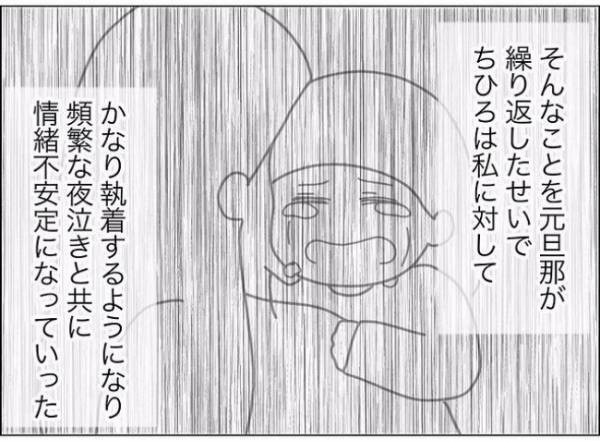 そんなことを元旦那が
繰り返したせいで
ちひろは私に対して
かなり執着するようになり
頻繁な夜泣きと共に
情緒不安定になっていった